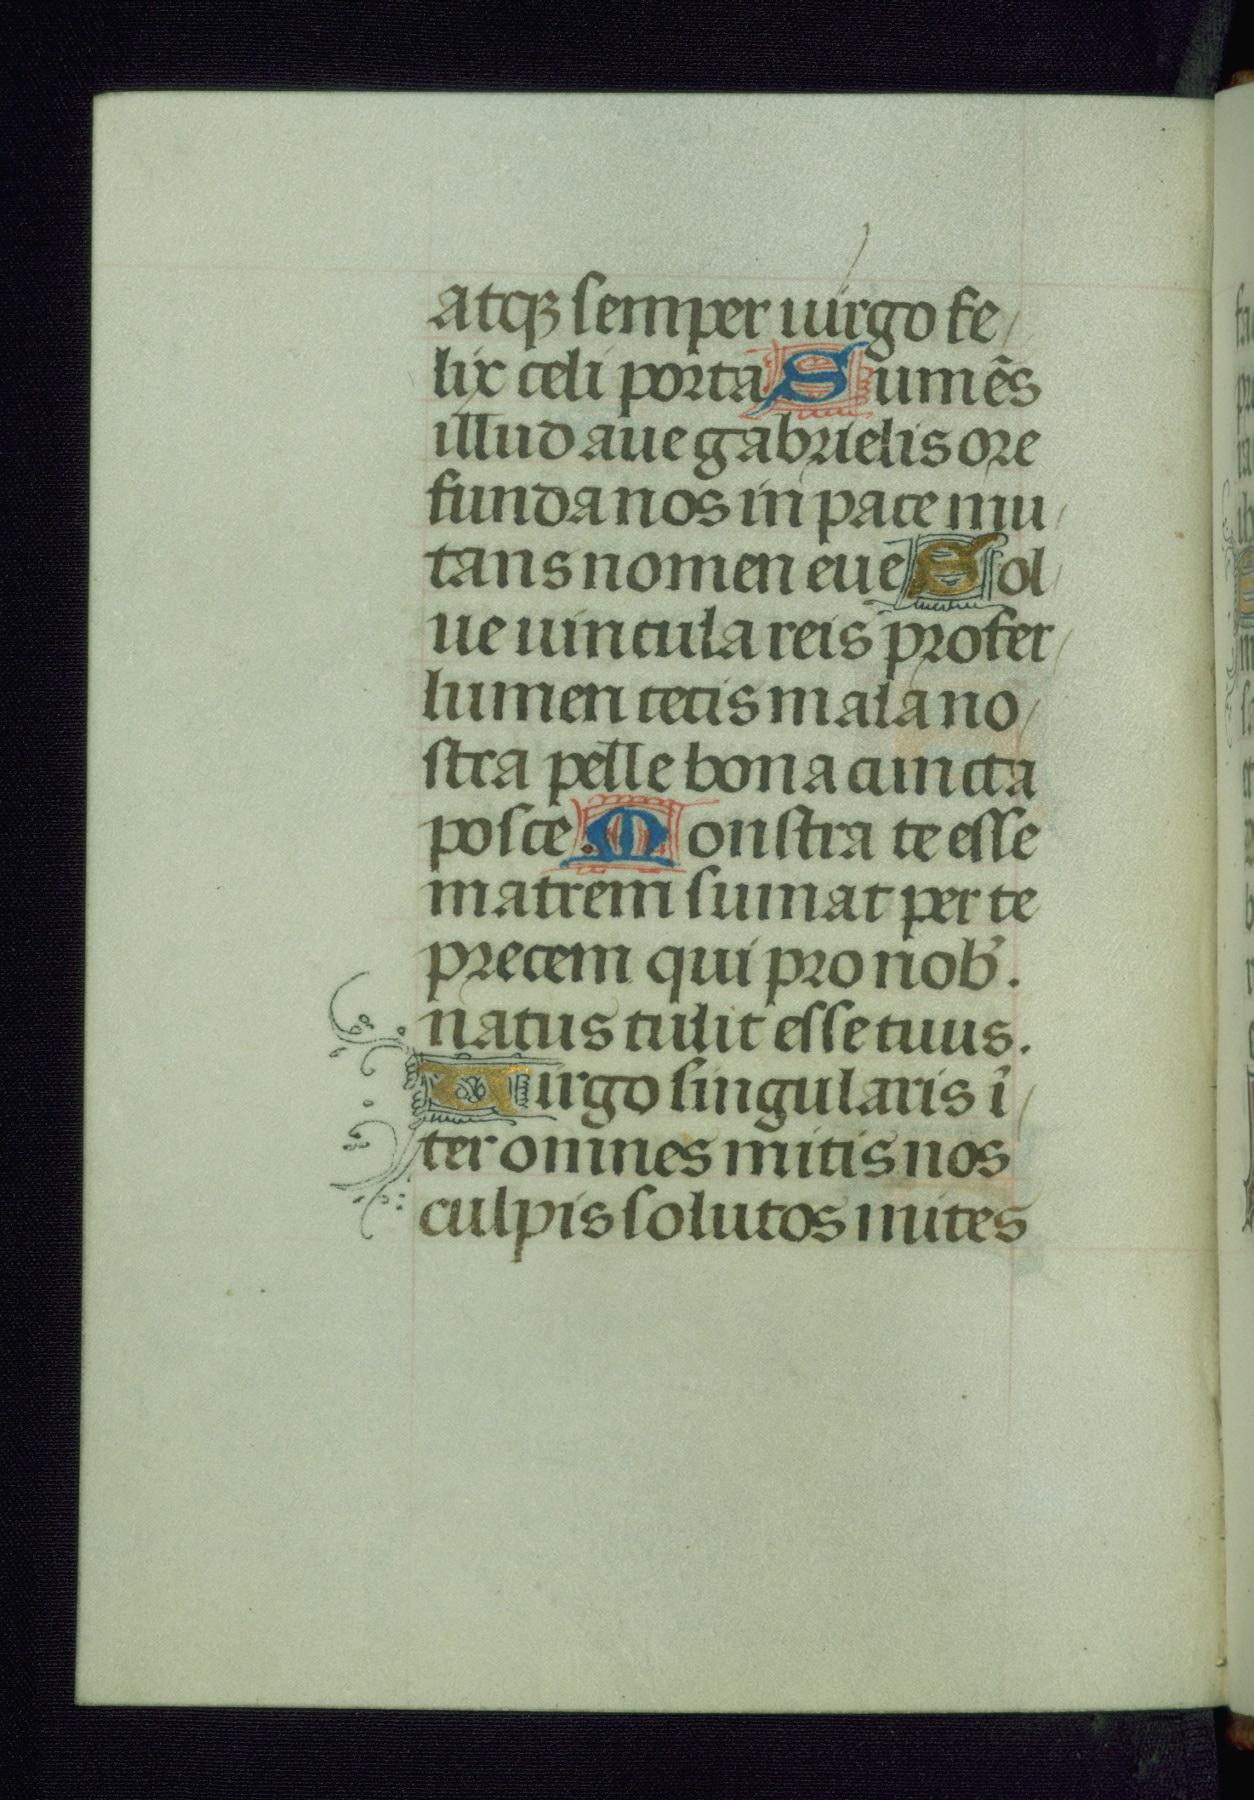 atqꝫ semper uirgo fe/
lix celi porta Sumẽs
illud aue gabrielis ore
funda nos in pace mu/
tans nomen eue Sol/
ue uincula reis profer/
lumen cecis mala no/
stra pelle bona cuncta
posce. Monstra te esse
matrem sumat per te
precem qui pro nob̾.
natus tulit esse tuus.
Uirgo singularis ĩ/
ter omnes mitis nos
culpis solutos mites